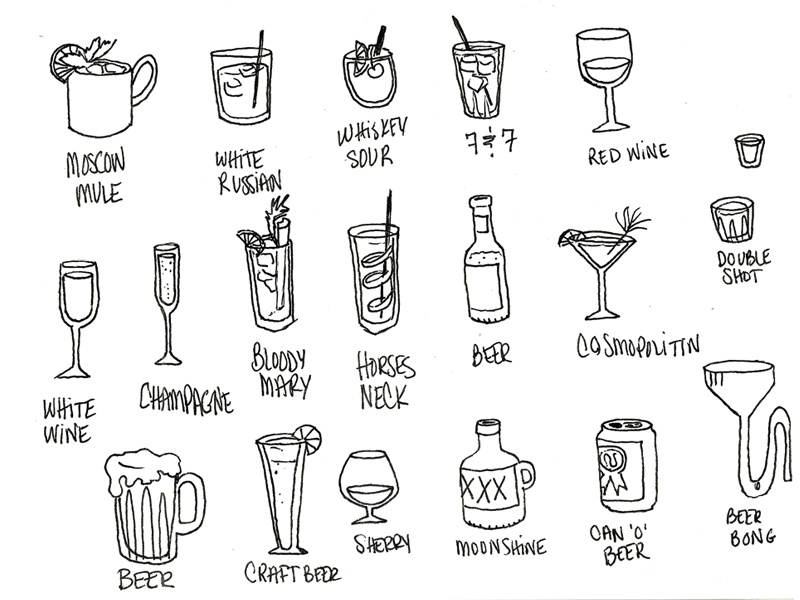 MOSCOW
MULE
WHITE
RUSSIAN
WHISKEY
SOUR
7 & 7
RED WINE
DOUBLE
SHOT
WHITE
WINE
CHAMPAGNE
BLOODY
MARY
HORSES
NECK
BEER
COSMOPOLITIN
BEER
CRAFT BEER
SHERRY
XXX
MOONSHINE
CAN 'O'
BEER
BEER
BONG